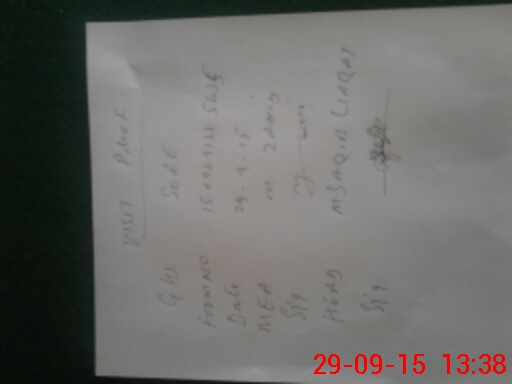 VISIT Proof
GHS SOLE
FORM NO
Date 29-9-15
MEA M ZAMID
Sig
HEAD M SAQIB LIAQAT
Sig
29-09-15 13:38